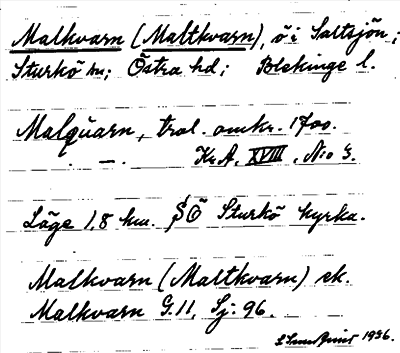 Malkvarn (Maltkvarn), ö i Saltsjön;
Sturkö sn; Östra hd; Blekinge l.
Malquarn, trol. omkr. 1700.
— Kr.A. XVIII. N:o 3.
Läge 1,8 km. SÖ Sturkö kyrka.
Malkvarn (Maltkvarn) ek.
Malkvarn G.11, Sj: 96.
1936.